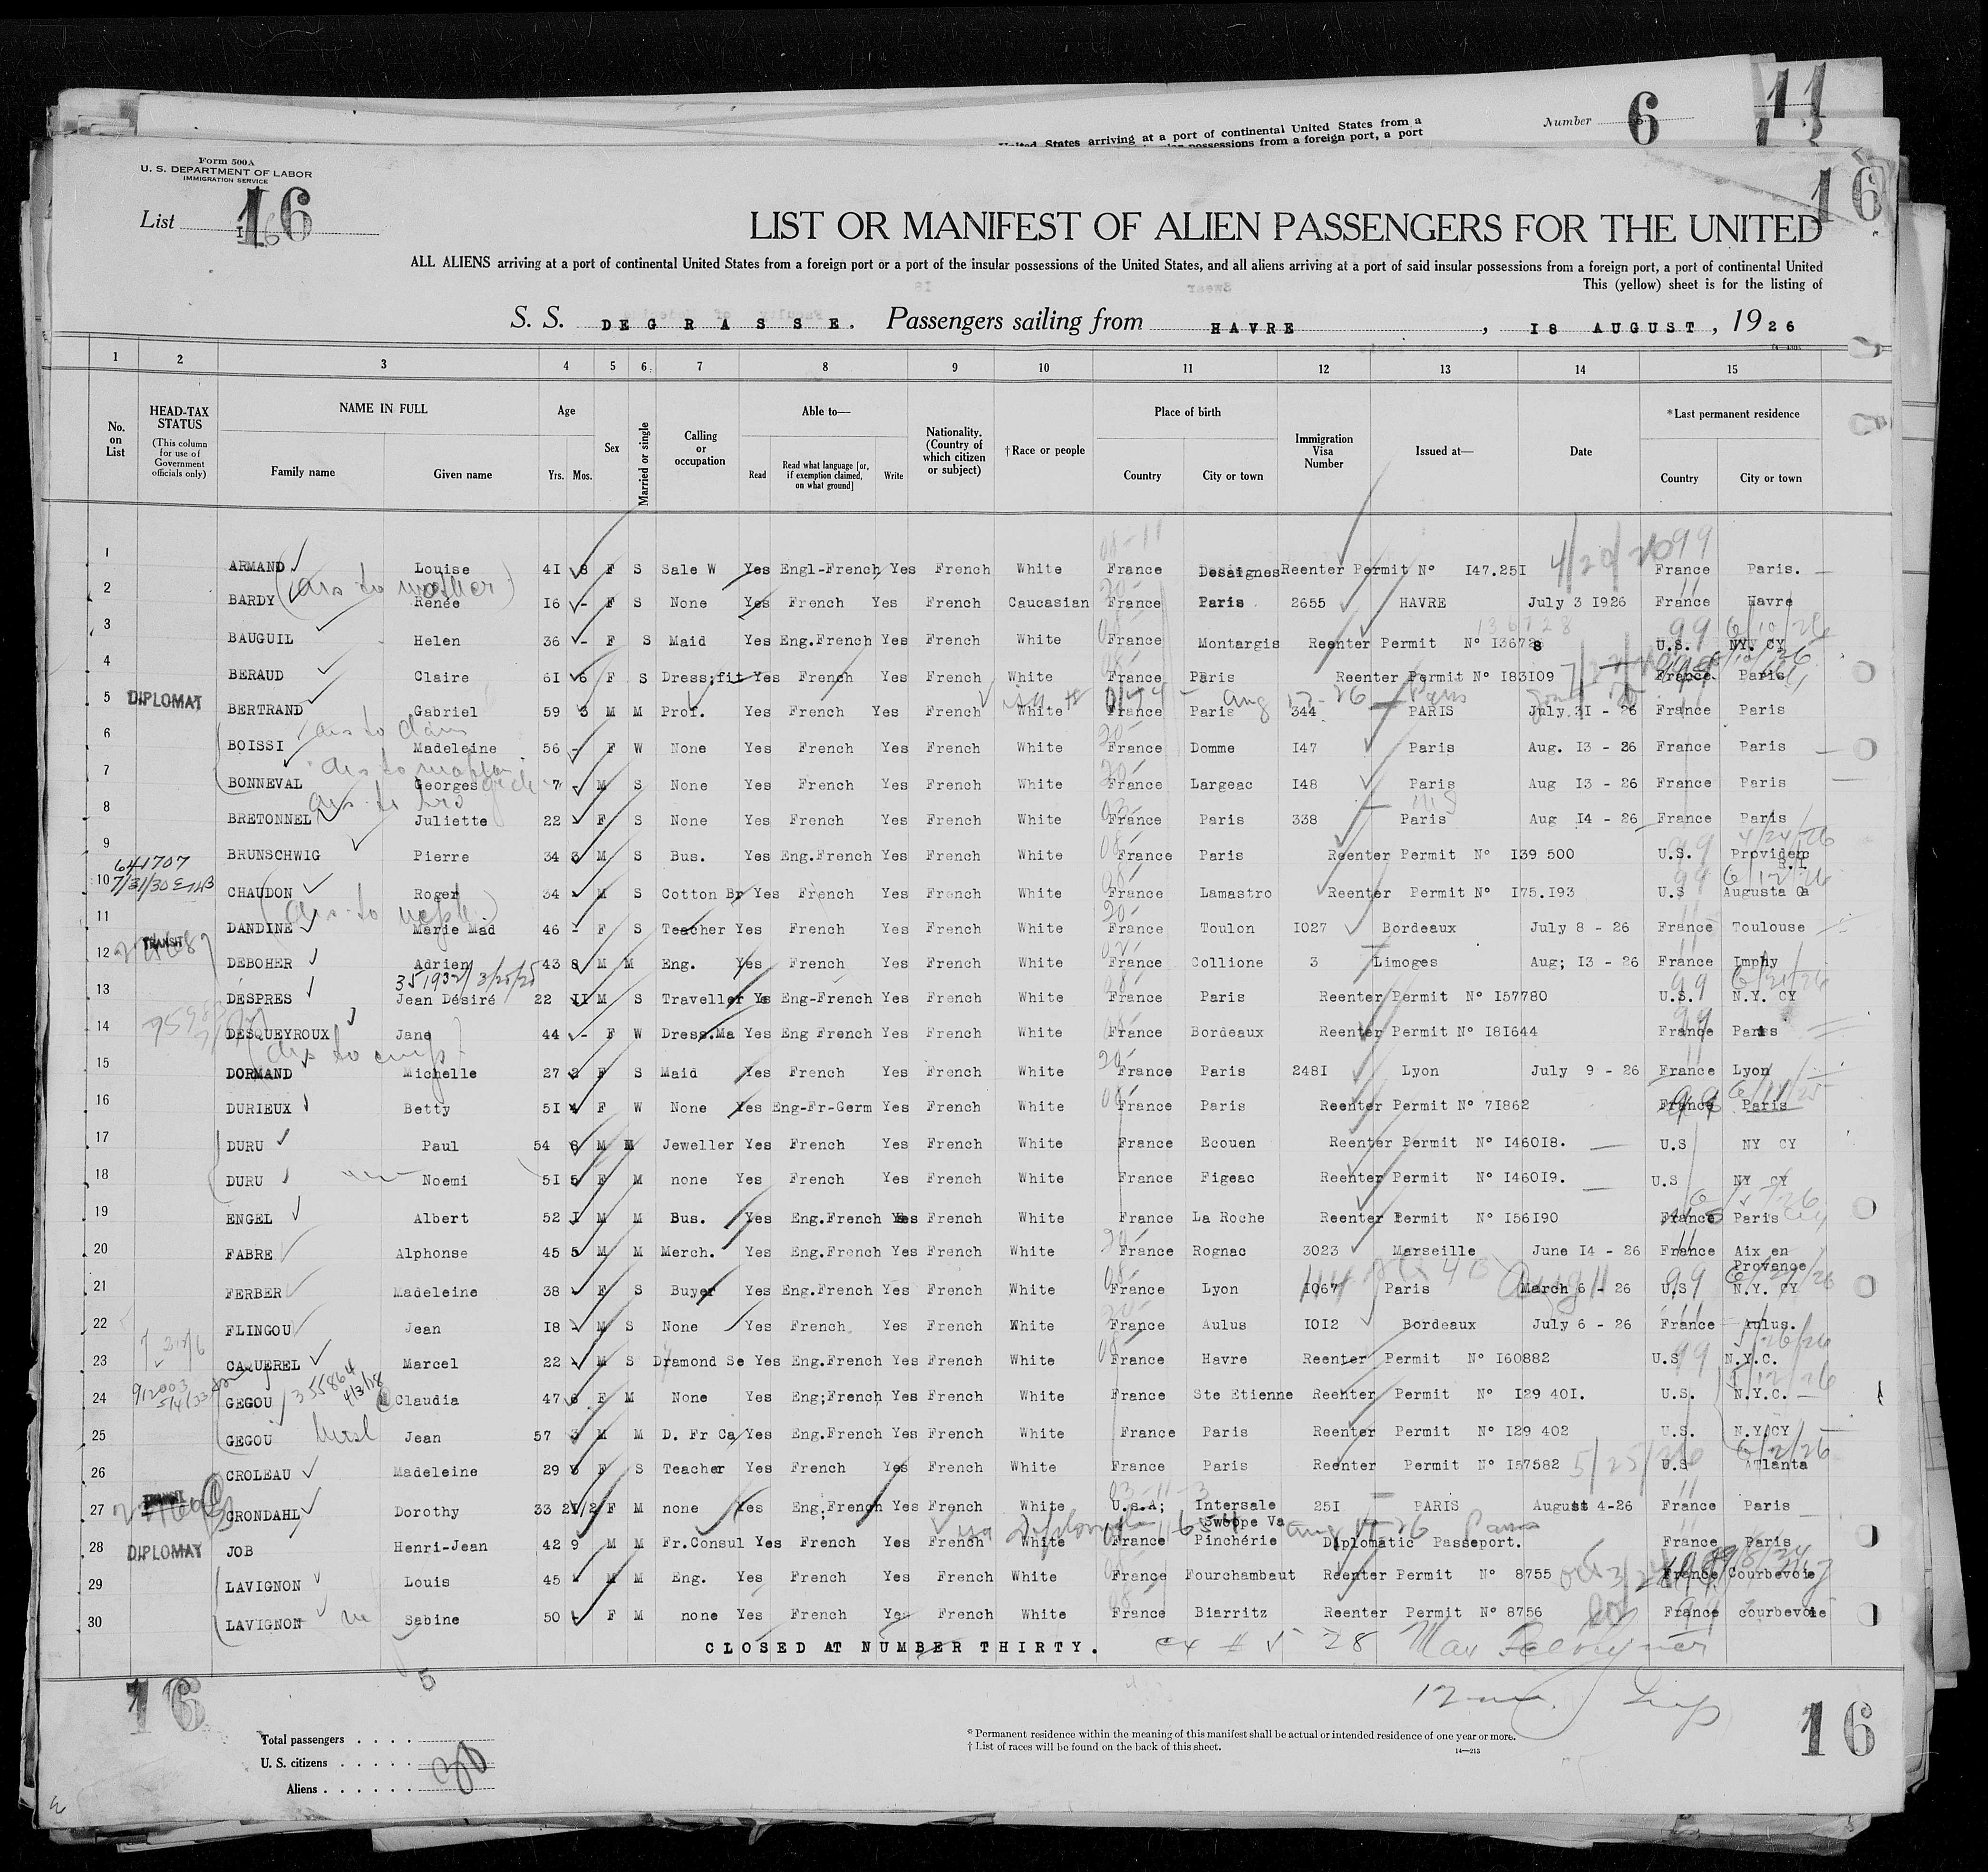 Number 6 11
United States arriving at a port of continental United States from a
possessions from a foreign port, a port
Form 500A
U. S. DEPARTMENT OF LABOR
IMMIGRATION SERVICE
List 16
16
LIST OR MANIFEST OF ALIEN PASSENGERS FOR THE UNITED
ALL ALIENS arriving at a port of continental United States from a foreign port or a port of the insular possessions of the United States, and all aliens arriving at a port of said insular possessions from a foreign port, a port of continental United
This (yellow) sheet is for the listing of
S. S. DE G R A S S E. Passengers sailing from HAVRE, I8 AUGUST, 1926
1 2 3 4 5 6 7 8 9 10 11 12 13 14 15
No. on List
HEAD-TAX STATUS (This column for use of Government officials only)
NAME IN FULL Family name Given name
Age Yrs. Mos.
Sex
Married or single
Calling or occupation
Able to— Read Read what language [or, if exemption claimed, on what ground] Write
Nationality. (Country of which citizen or subject)
†Race or people
Place of birth Country City or town
Immigration Visa Number
Issued at—
Date
*Last permanent residence Country City or town
1 ARMAND Louise 4I 8 F S Sale W Yes Engl-French Yes French White France Desaignes Reenter Permit N° I47.25I France Paris.
2 BARDY Renée I6 - F S None Yes French Yes French Caucasian France Paris 2655 HAVRE July 3 I926 France Havre
3 BAUGUIL Helen 36 - F S Maid Yes Eng.French Yes French White France Montargis Reenter Permit N° I36728 U.S. NY. CY
4 BERAUD Claire 6I 6 F S Dress;fit Yes French Yes French White France Paris Reenter Permit N° I83I09 France Paris
5 DIPLOMAT BERTRAND Gabriel 59 3 M M Prof. Yes French Yes French White France Paris 344 PARIS July.3I - 26 France Paris
6 BOISSI Madeleine 56 - F W None Yes French Yes French White France Domme I47 Paris Aug. I3 - 26 France Paris
7 BONNEVAL Georges 7 M S None Yes French Yes French White France Largeac I48 Paris Aug I3 - 26 France Paris
8 BRETONNEL Juliette 22 - F S None Yes French Yes French White France Paris 338 Paris Aug I4 - 26 France Paris
9 BRUNSCHWIG Pierre 34 3 M S Bus. Yes Eng.French Yes French White France Paris Reenter Permit N° I39 500 U.S. Providenc
641707
10 7/31/30 CHAUDON Roger 34 - M S Cotton Br Yes French Yes French White France Lamastro Reenter Permit N° I75.I93 U.S Augusta Ga
11 DANDINE Marie Mad 46 - F S Teacher Yes French Yes French White France Toulon I027 Bordeaux July 8 - 26 France Toulouse
12 TRANSIT DEBOHER Adrien 43 8 M M Eng. Yes French Yes French White France Collione 3 Limoges Aug; I3 - 26 France Imphy
13 DESPRES Jean Désiré 22 II M S Traveller Yes Eng-French Yes French White France Paris Reenter Permit N° I57780 U.S. N.Y. CY
14 DESQUEYROUX Jane 44 - F W Dress.Ma Yes Eng French Yes French White France Bordeaux Reenter Permit N° I8I644 France Paris
15 DORMAND Michelle 27 2 F S Maid Yes French Yes French White France Paris 248I Lyon July 9 - 26 France Lyon
16 DURIEUX Betty 5I 4 F W None Yes Eng-Fr-Germ Yes French White France Paris Reenter Permit N° 7I862 France Paris
17 DURU Paul 54 8 M M Jeweller Yes French Yes French White France Ecouen Reenter Permit N° I460I8. U.S NY CY
18 DURU Noemi 5I 5 F M none Yes French Yes French White France Figeac Reenter Permit N° I460I9. U.S NY CY
19 ENGEL Albert 52 I M M Bus. Yes Eng.French Yes French White France La Roche Reenter Permit N° I56I90 France Paris
20 FABRE Alphonse 45 5 M M Merch. Yes Eng.French Yes French White France Rognac 3023 Marseille June I4 - 26 France Aix en Provence
21 FERBER Madeleine 38 - F S Buyer Yes Eng.French Yes French White France Lyon I067 Paris March 6 - 26 U.S N.Y. CY
22 FLINGOU Jean I8 - M S None Yes French Yes French White France Aulus I0I2 Bordeaux July 6 - 26 France Aulus.
23 CAQUEREL Marcel 22 - M S Dramond Se Yes Eng.French Yes French White France Havre Reenter Permit N° I60882 U.S N.Y.C.
24 GEGOU Claudia 47 6 F M None Yes Eng;French Yes French White France Ste Etienne Reenter Permit N° I29 40I. U.S. N.Y.C.
25 GEGOU Jean 57 3 M M D. Fr Ca Yes Eng.French Yes French White France Paris Reenter Permit N° I29 402 U.S. N.Y/CY
26 CROLEAU Madeleine 29 8 F S Teacher Yes French Yes French White France Paris Reenter Permit N° I57582 5/25/26 U.S Atlanta
27 CRONDAHL Dorothy 33 2I/2 F M none Yes Eng;French Yes French White U.s.A; Intersale Swoope Va 25I PARIS August 4-26 France Paris
28 DIPLOMAT JOB Henri-Jean 42 9 M M Fr.Consul Yes French Yes French White France Pinchérie Diplomatic Passeport. France Paris
29 LAVIGNON Louis 45 - M M Eng. Yes French Yes French White France Fourchambaut Reenter Permit N° 8755 France Courbevoie
30 LAVIGNON Sabine 50 - F M none Yes French Yes French White France Biarritz Reenter Permit N° 8756 France courbevoie
CLOSED AT NUMBER THIRTY.
16
5
Total passengers
U. S. citizens
Aliens
30
* Permanent residence within the meaning of this manifest shall be actual or intended residence of one year or more.
† List of races will be found on the back of this sheet.
14—213
16